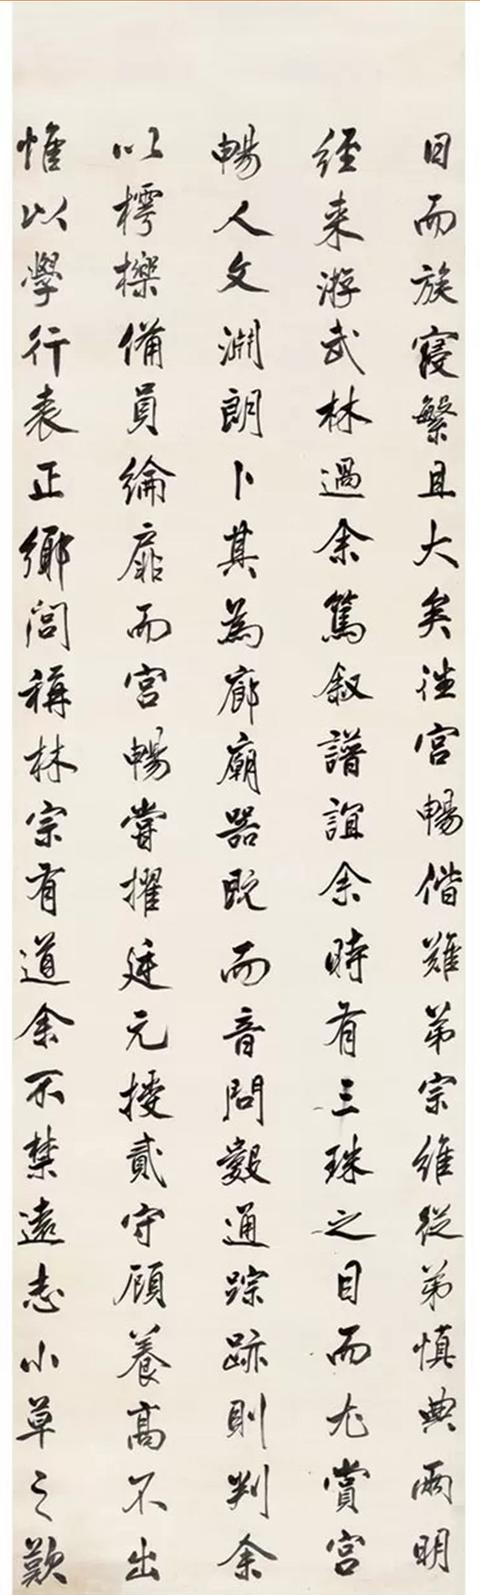 日而族寖繁且大矣往宫暢偕難弟宗維從弟慎典兩明
經来游武林過余篤叙譜誼余時有三珠之目而尤賞宫
暢人文淵朗卜其為廊廟器既而音問數通踪跡則判余
以樗櫟備員綸扉而宫暢嘗擢廷元授貳守顧養高不出
惟以學行表正鄉閭稱林宗有道余不禁遠志小草之歎